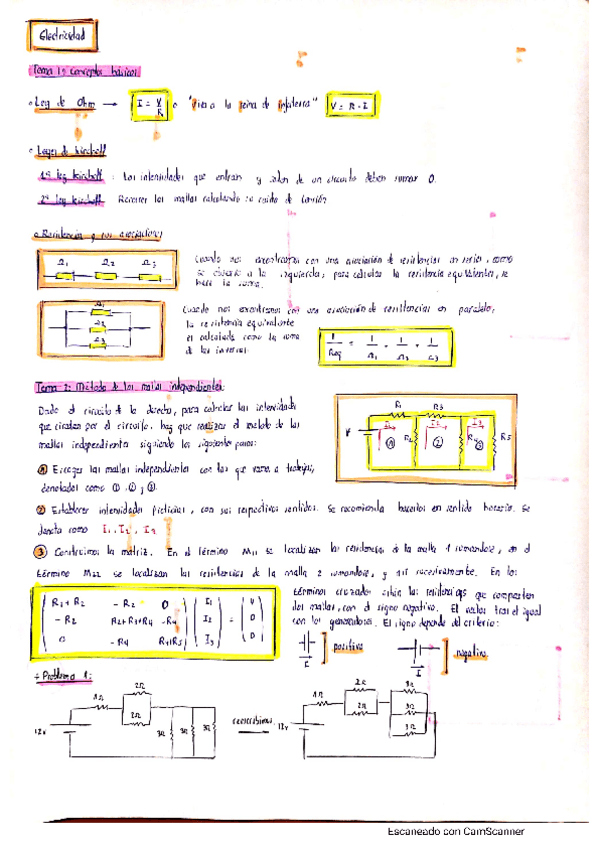 Electricidad
Tema 1: Conceptos básicos
• Ley de Ohm → I = V/R o "Viva la reina de Inglaterra" V = R · I
• Leyes de kirchoff
1ª ley kirchoff : Las intensidades que entran y salen de un circuito deben sumar 0.
2ª ley kirchoff Recorrer las mallas calculando su caída de tensión
• Resistencia y sus asociaciones
Ω1 Ω2 Ω3
Cuando nos encontramos con una asociación de resistencias en serie, como
se observa a la izquierda, para calcular la resistencia equivalente, se
hace la suma.
Ω1
Ω2
Ω3
Cuando nos encontramos con una asociación de resistencias en paralelo,
la resistencia equivalente
es calculada como la suma
de las inversas.
1/Req = 1/Ω1 + 1/Ω2 + 1/Ω3
Tema 2: Método de las mallas independientes:
Dado el circuito de la derecha, para calcular las intensidades
que circulan por el circuito, hay que realizar el método de las
mallas independientes siguiendo los siguientes pasos:
V R1 R3 R2 R4 R5 I1 I2 I3 1 2 3
1 Escoger las mallas independientes con las que vamos a trabajar,
denotadas como 1, 2 y 3.
2 Establecer intensidades ficticias, con sus respectivos sentidos. Se recomienda hacerlos en sentido horario. Se
denota como I1, I2, I3
3 Construimos la matriz. En el término M11 se localizan las resistencias de la malla 1 sumandose, en el
término M22 se localizan las resistencias de la malla 2 sumandose, y así sucesivamente. En los
términos cruzados están las resistencias que comparten
dos mallas, con el signo negativo. El vector tras el igual
con los generadores. El signo depende del criterio:
R1+R2 -R2 0 I1 V
-R2 R2+R3+R4 -R4 I2 = 0
0 -R4 R4+R5 I3 0
I positivo
I negativo
• Problema 1:
12v 1Ω 2Ω 2Ω 3Ω 3Ω 3Ω
reescribimos
12v 1Ω 2Ω 2Ω 3Ω 3Ω 3Ω
Escaneado con CamScanner